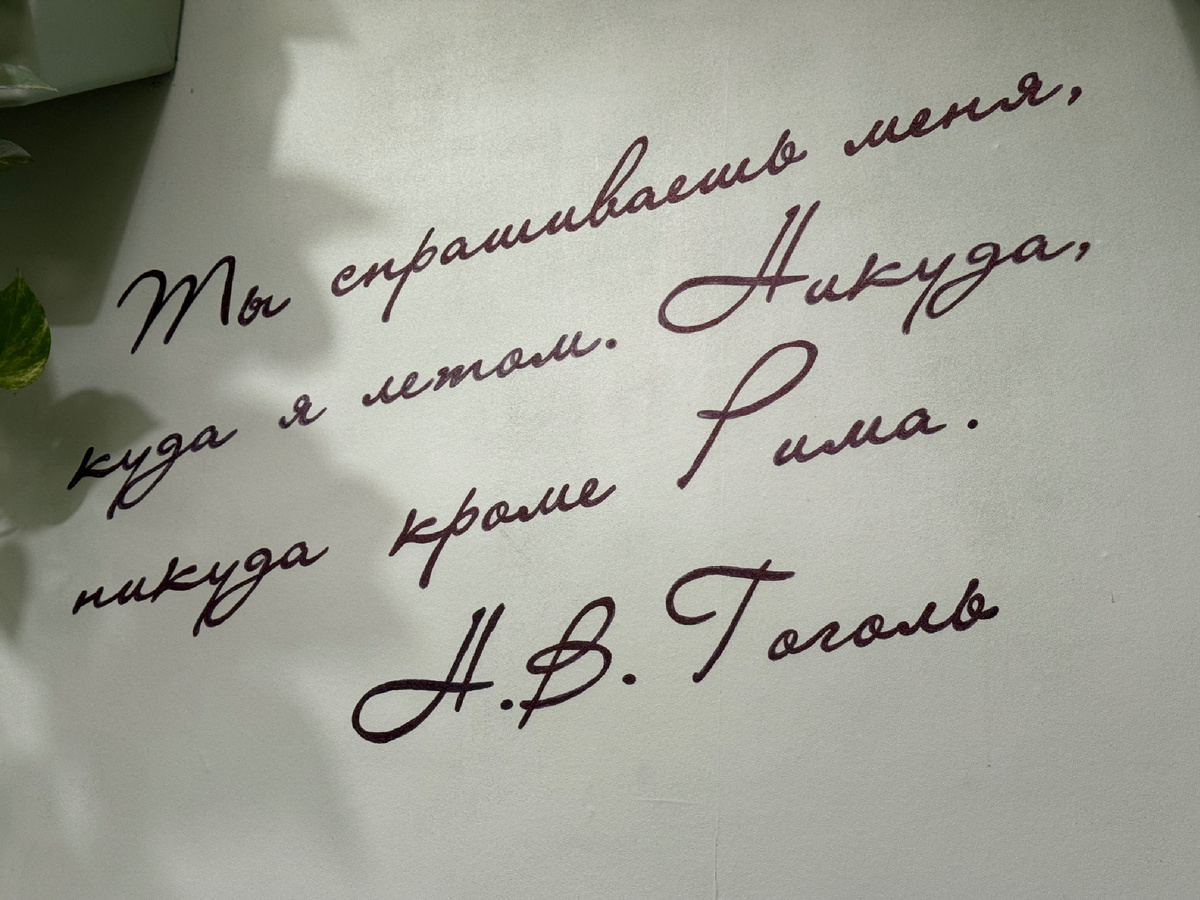 Ты спрашиваешь меня,
куда я летом. Никуда,
никуда кроме Рима.
Н.В. Гоголь